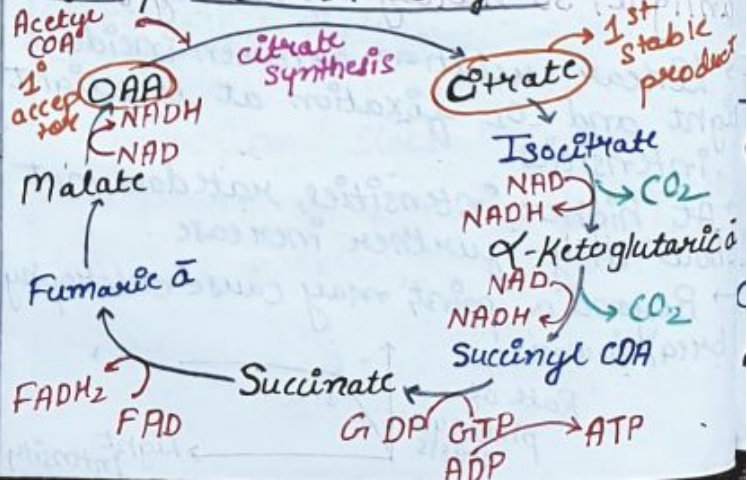 Acetyl
COA
citrate
synthesis
1st
stable
product
1°
acceptor
OAA
Citrate
NADH
NAD
Malate
Isocitrate
NAD
NADH
CO2
α-Ketoglutaric ā
NAD
NADH
CO2
Fumaric ā
Succinyl COA
Succinate
FADH2
FAD
GDP GTP
ADP
ATP